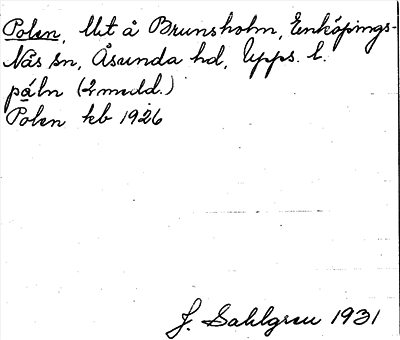 Polen, lht å Brunsholm, Enköpings-
Näs sn, Åsunda hd, Upps. l.
páln (2 medd.)
Polen kb 1926
J. Sahlgren 1931